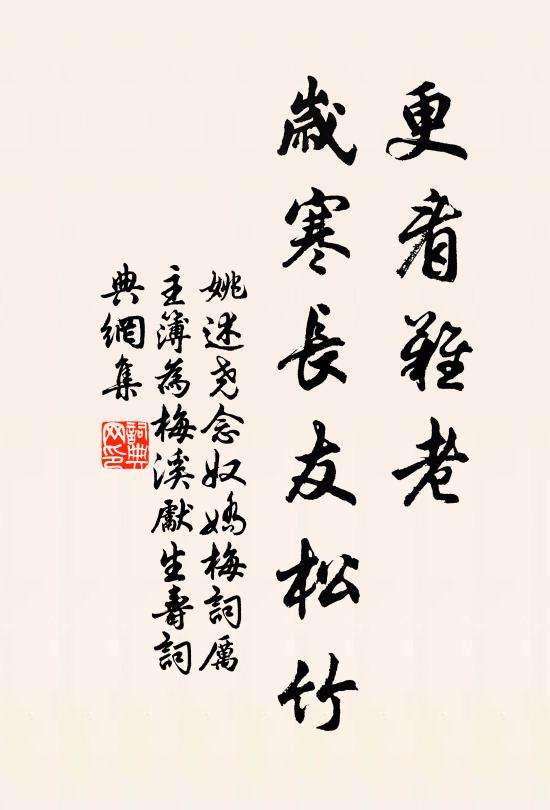 更看難老
歲寒長友松竹
姚述堯念奴嬌梅詞厲
主簿為梅溪獻生壽詞
典網集
詞典網印